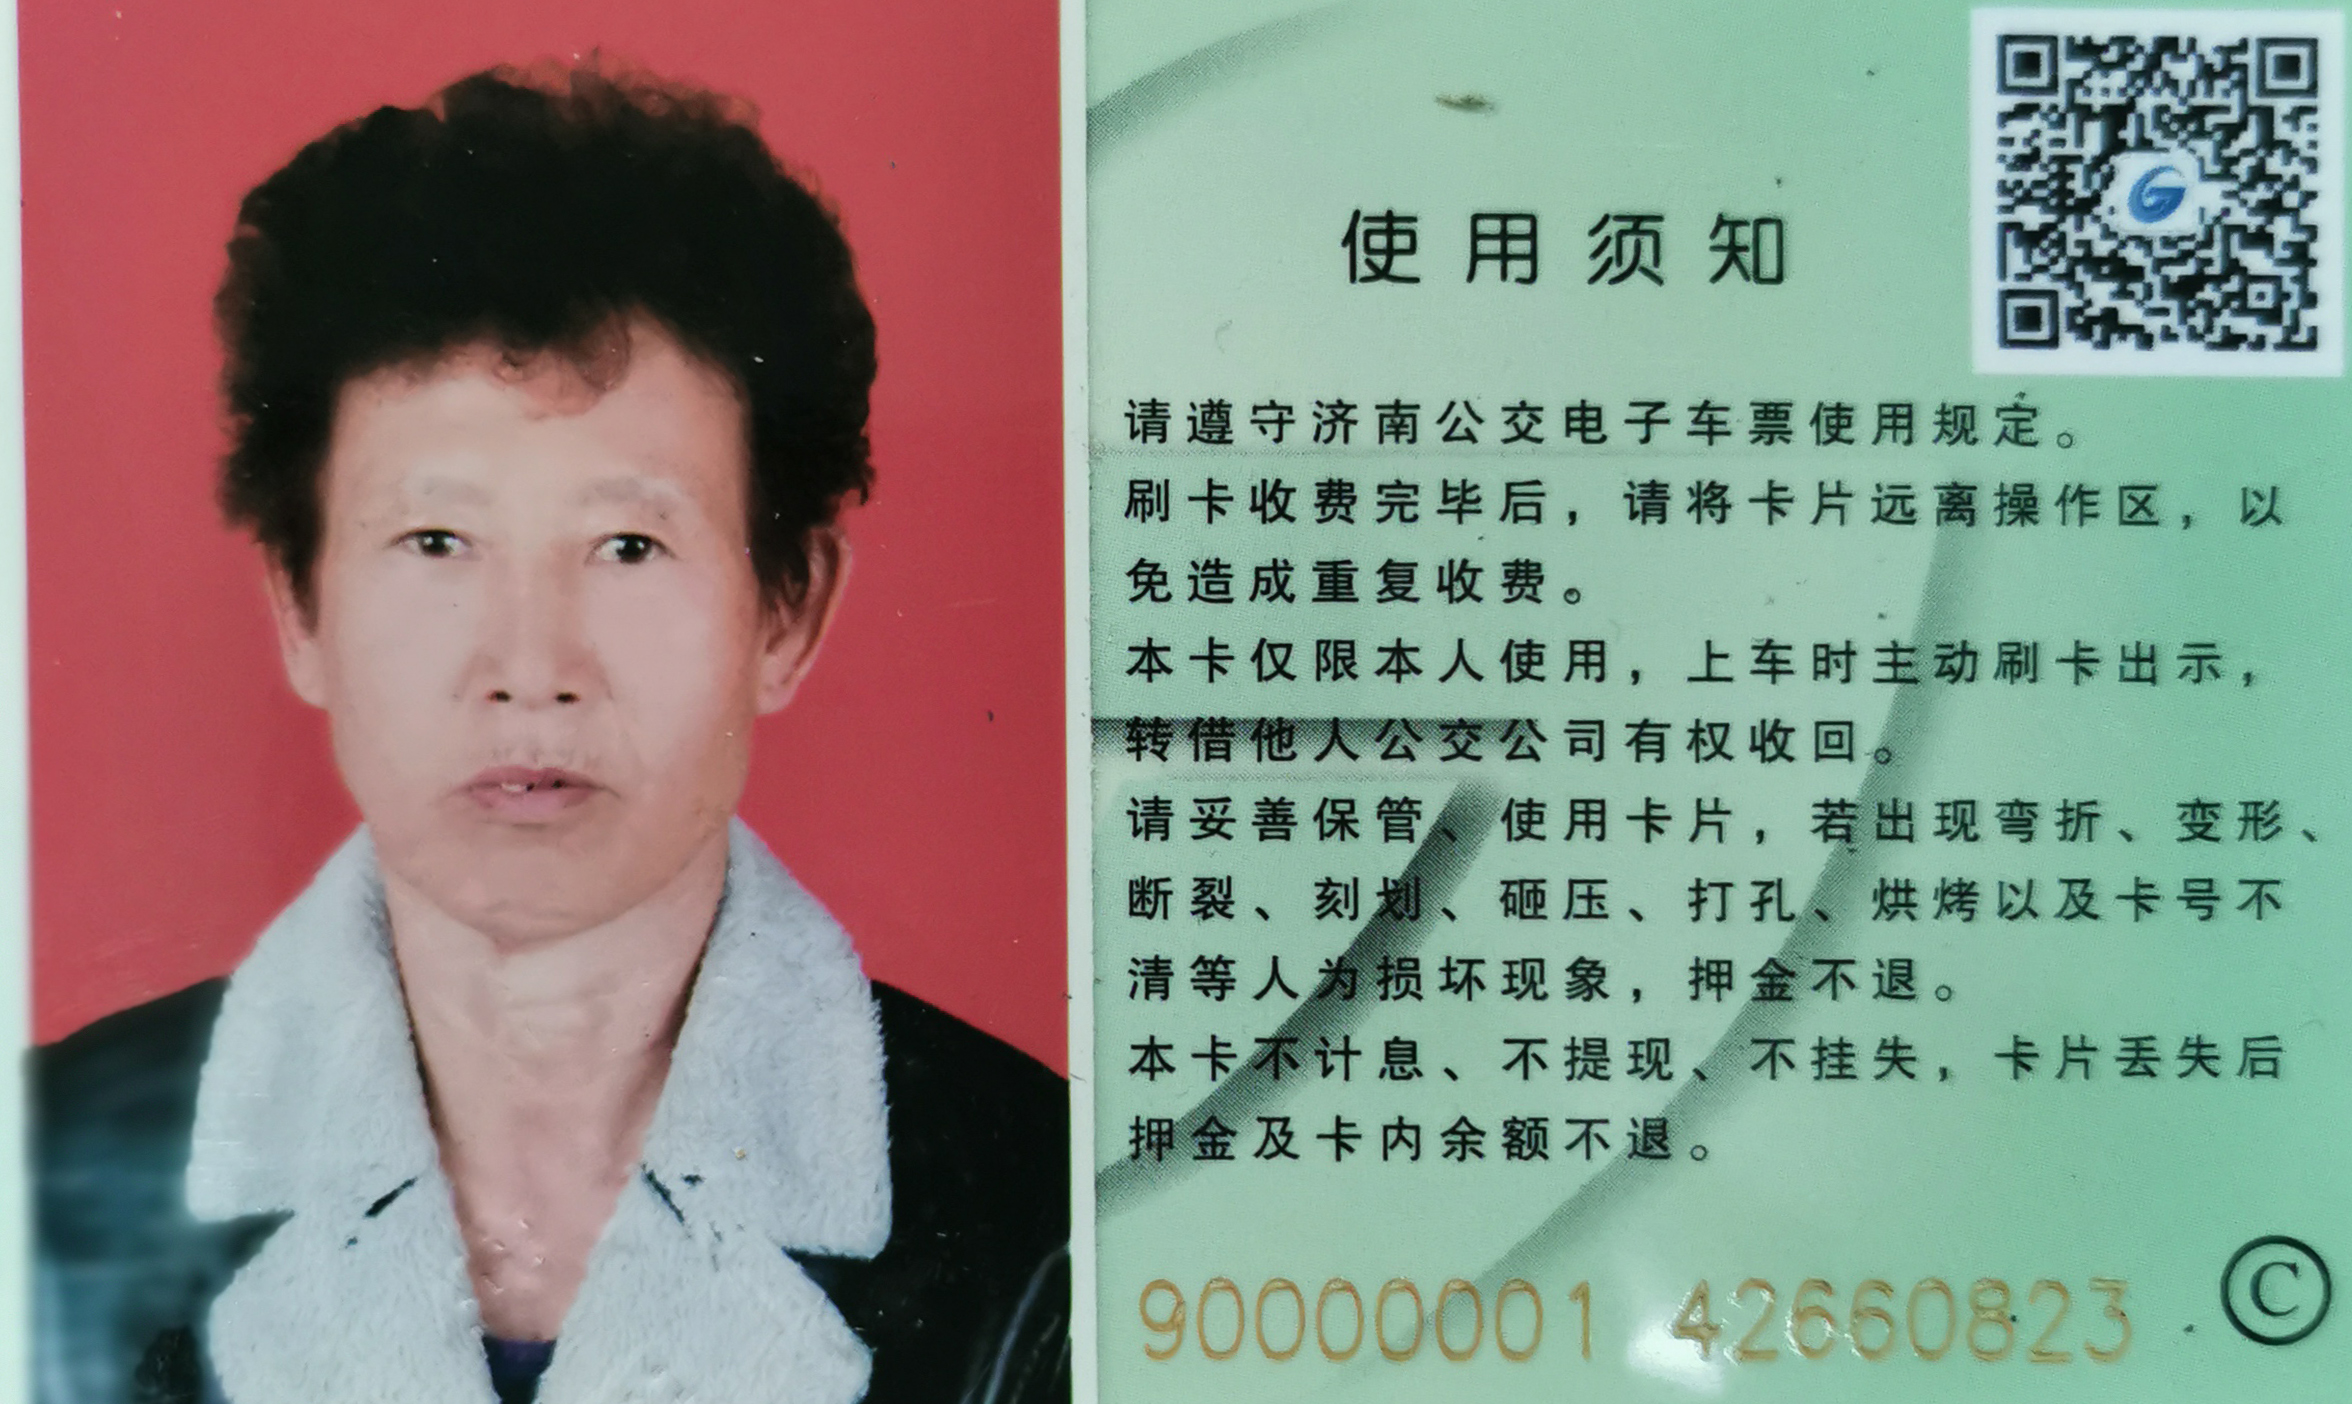 使用须知
请遵守济南公交电子车票使用规定。
刷卡收费完毕后，请将卡片远离操作区，以
免造成重复收费。
本卡仅限本人使用，上车时主动刷卡出示，
转借他人公交公司有权收回。
请妥善保管、使用卡片，若出现弯折、变形、
断裂、刻划、砸压、打孔、烘烤以及卡号不
清等人为损坏现象，押金不退。
本卡不计息、不提现、不挂失，卡片丢失后
押金及卡内余额不退。
90000001 42660823
©